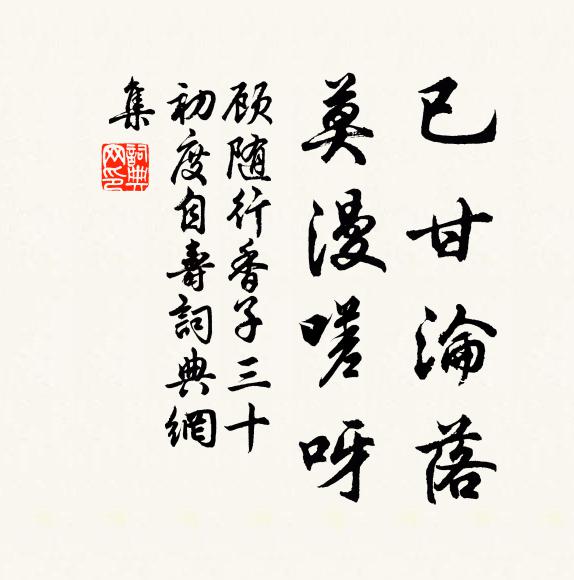 已甘淪落
莫漫嗟呀
顾随行香子三十
初度自壽詞典網
集
詞典網印